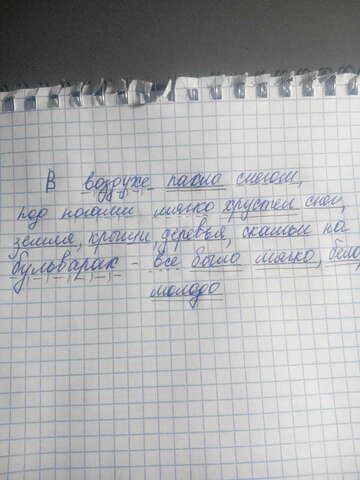 В воздухе пахло снегом,
под ногами мягко хрустел снег,
земля, крыши, деревья, скамьи на
бульварах - все было мягко, бело,
молодо